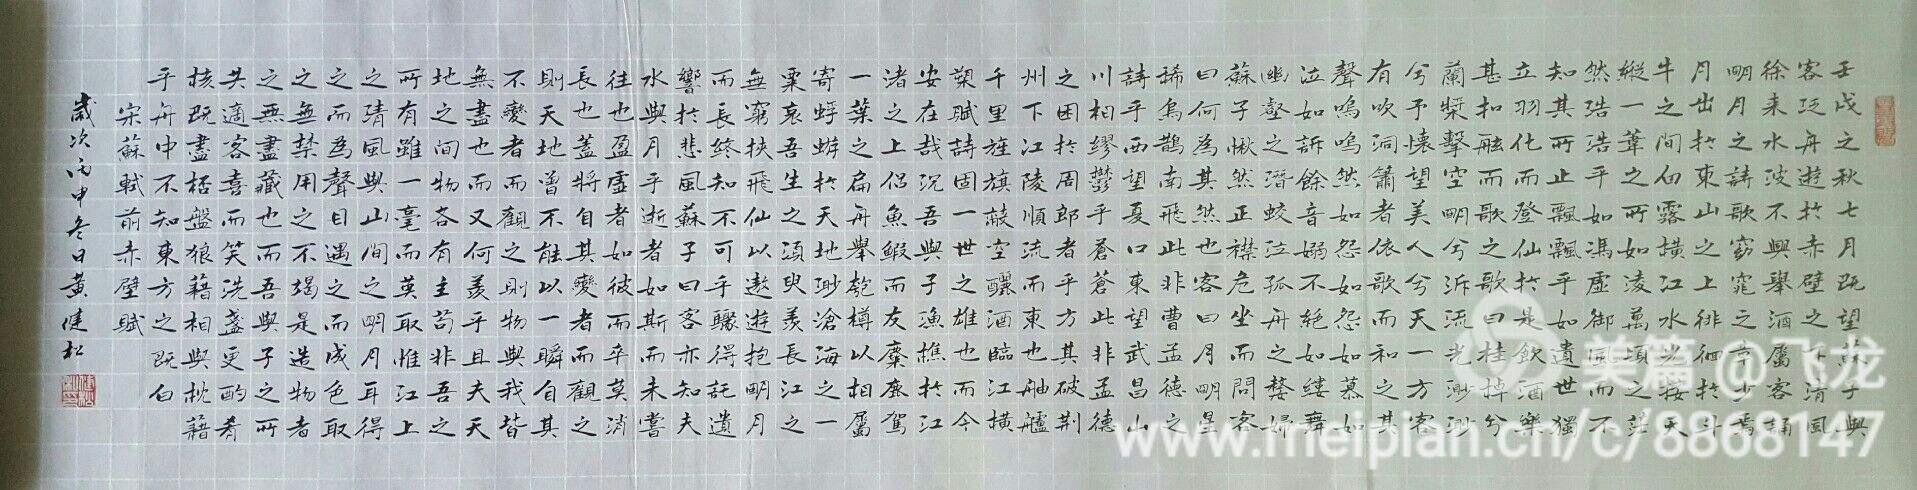 壬戌之秋七月既望蘇子與
客泛舟遊於赤壁之下清風
徐来水波不興舉酒屬客誦
明月之詩歌窈窕之章少焉
月出於東山之上徘徊於斗
牛之間白露橫江水光接天
縱一葦之所如凌萬頃之茫
然浩浩乎如馮虛御風而不
知其所止飄飄乎如遺世獨
立羽化而登仙於是飲酒樂
甚扣舷而歌之歌曰桂棹兮
蘭槳擊空明兮泝流光渺渺
兮予懷望美人兮天一方客
有吹洞簫者依歌而和之其
聲嗚嗚然如怨如怨如慕如
泣如訴餘音嫋不絕如縷舞
幽壑之潛蛟泣孤舟之嫠婦
蘇子愀然正襟危坐而問客
曰何為其然也客曰月明星
稀烏鵲南飛此非曹孟德之
詩乎西望夏口東望武昌山
川相繆鬱乎蒼蒼此非孟德
之困於周郎者乎方其破荊
州下江陵順流而東也舳艫
千里旌旗蔽空釃酒臨江橫
槊賦詩固一世之雄也而今
安在哉況吾與子漁樵於江
渚之上侶魚鰕而友麋鹿駕
一葉之扁舟舉匏樽以相屬
寄蜉蝣於天地渺滄海之一
粟哀吾生之須臾羨長江之
無窮挾飛仙以遨遊抱明月
而長終知不可乎驟得託遺
響於悲風蘇子曰客亦知夫
水與月乎逝者如斯而未嘗
往也盈虛者如彼而卒莫消
長也蓋將自其變者而觀之
則天地曾不能以一瞬自其
不變者而觀之則物與我皆
無盡也而又何羨乎且夫天
地之間物各有主苟非吾之
所有雖一毫而莫取惟江上
之清風與山間之明月耳得
之而為聲目遇之而成色取
之無禁用之不竭是造物者
之無盡藏也而吾與子之所
共適客喜而笑洗盞更酌肴
核既盡杯盤狼藉相與枕藉
乎舟中不知東方之既白
宋蘇軾前赤壁賦
歲次丙申冬日黃健松
美篇@飞龙
www.meipian.cn/c/8868147